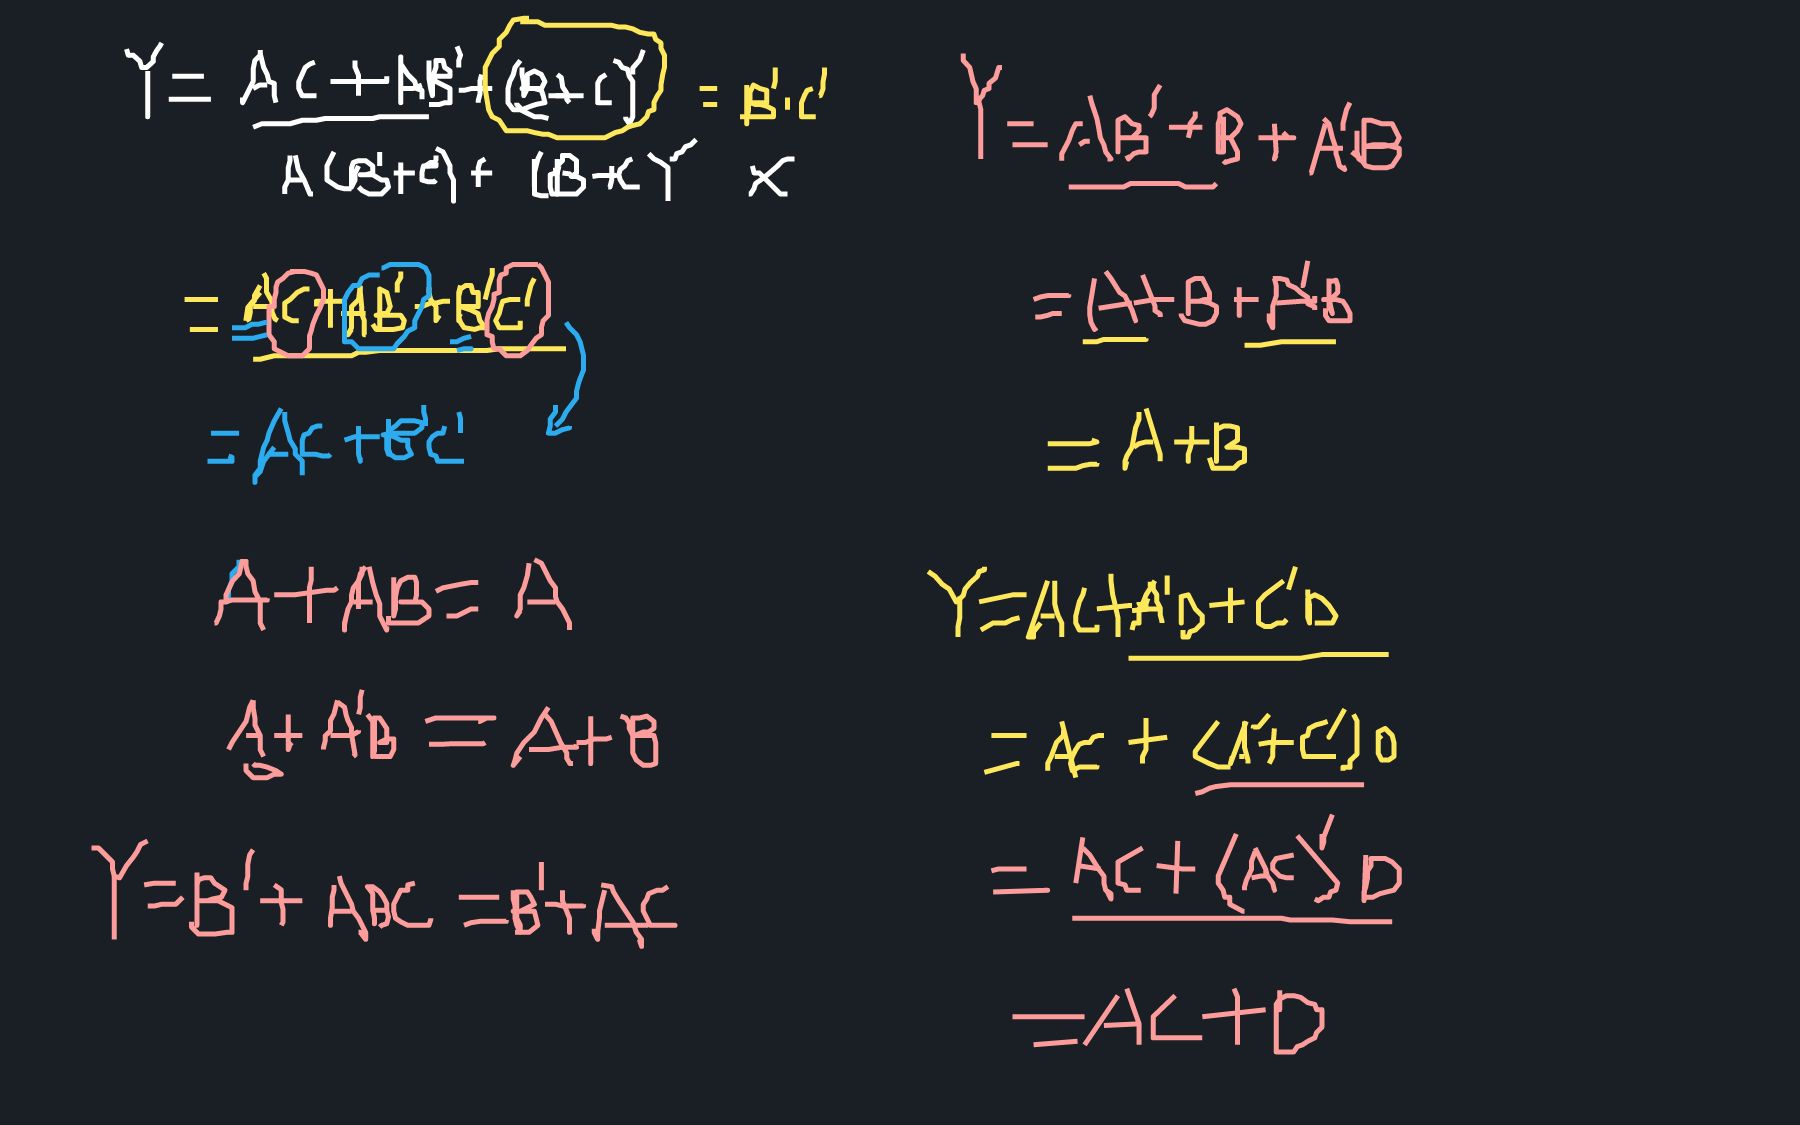 Y = AC + AB' + (B + C)' = B'·C'
A(B' + C) + (B + C)' X
= AC + AB' + B'C'
= AC + B'C'
A + AB = A
A + A'B = A + B
Y = B' + ABC = B' + AC
Y = AB' + B + A'B
= A + B + A'B
= A + B
Y = AC + A'D + C'D
= AC + (A' + C')D
= AC + (AC)'D
= AC + D